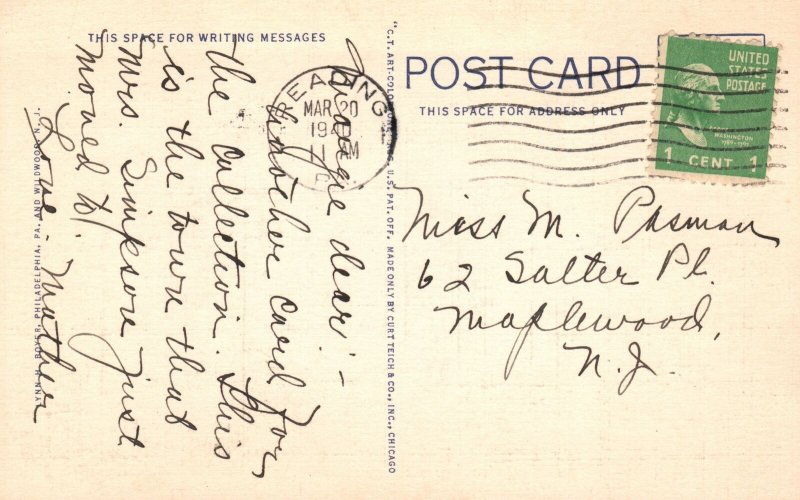 THIS SPACE FOR WRITING MESSAGES
Margie dear:-
Another card for
the collection. This
is the town that
Mrs. Simpson just
moved to.
Love - Mother
LYNN H. BOYER, PHILADELPHIA, PA. AND WILDWOOD, N. J.
"C. T. ART-COLORTONE" REG. U.S. PAT. OFF. MADE ONLY BY CURT TEICH & CO., INC., CHICAGO
POST CARD
THIS SPACE FOR ADDRESS ONLY
READING
MAR 20
1940
11 AM
P
UNITED
STATES
POSTAGE
WASHINGTON
1789-1797
1 CENT 1
Miss M. Pasman
62 Salter Pl.
Maplewood,
N. J.